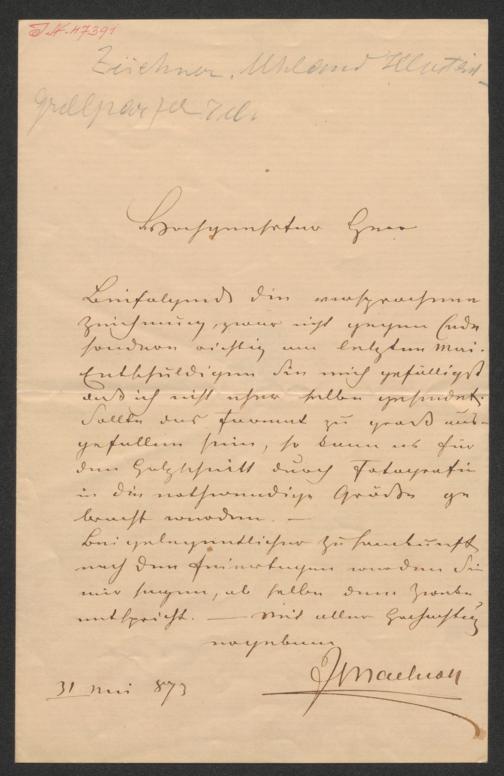 I.N. 47391
Zeichner. Uhland Illustrat-
Grillparzer
Hochgeehrter Herr
Beifolgend die versprochene
Zeichnung, zwar nicht gegen Ende
sondern richtig am letzten Mai.
Entschuldigen Sie mich gefälligst
daß ich nicht eher selbe gesendet.
Sollte das Format zu groß aus-
gefallen sein, so kann es für
den Holzschnitt durch Fotografie
in die nothwendige Größe ge
bracht werden. —
Bei gelegentlicher Zusamkunft
nach den Feiertagen werden Sie
mir sagen, ob selbe dem Zwecke
entspricht. — Mit aller Hochachtung
ergebener
31 Mai 873